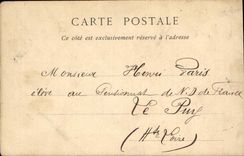 CARTE POSTALE
Ce côté est exclusivement réservé à l'adresse
Monsieur Henri Paris
élève au Pensionnat de N.D de France
Le Puy
(Hte Loire)